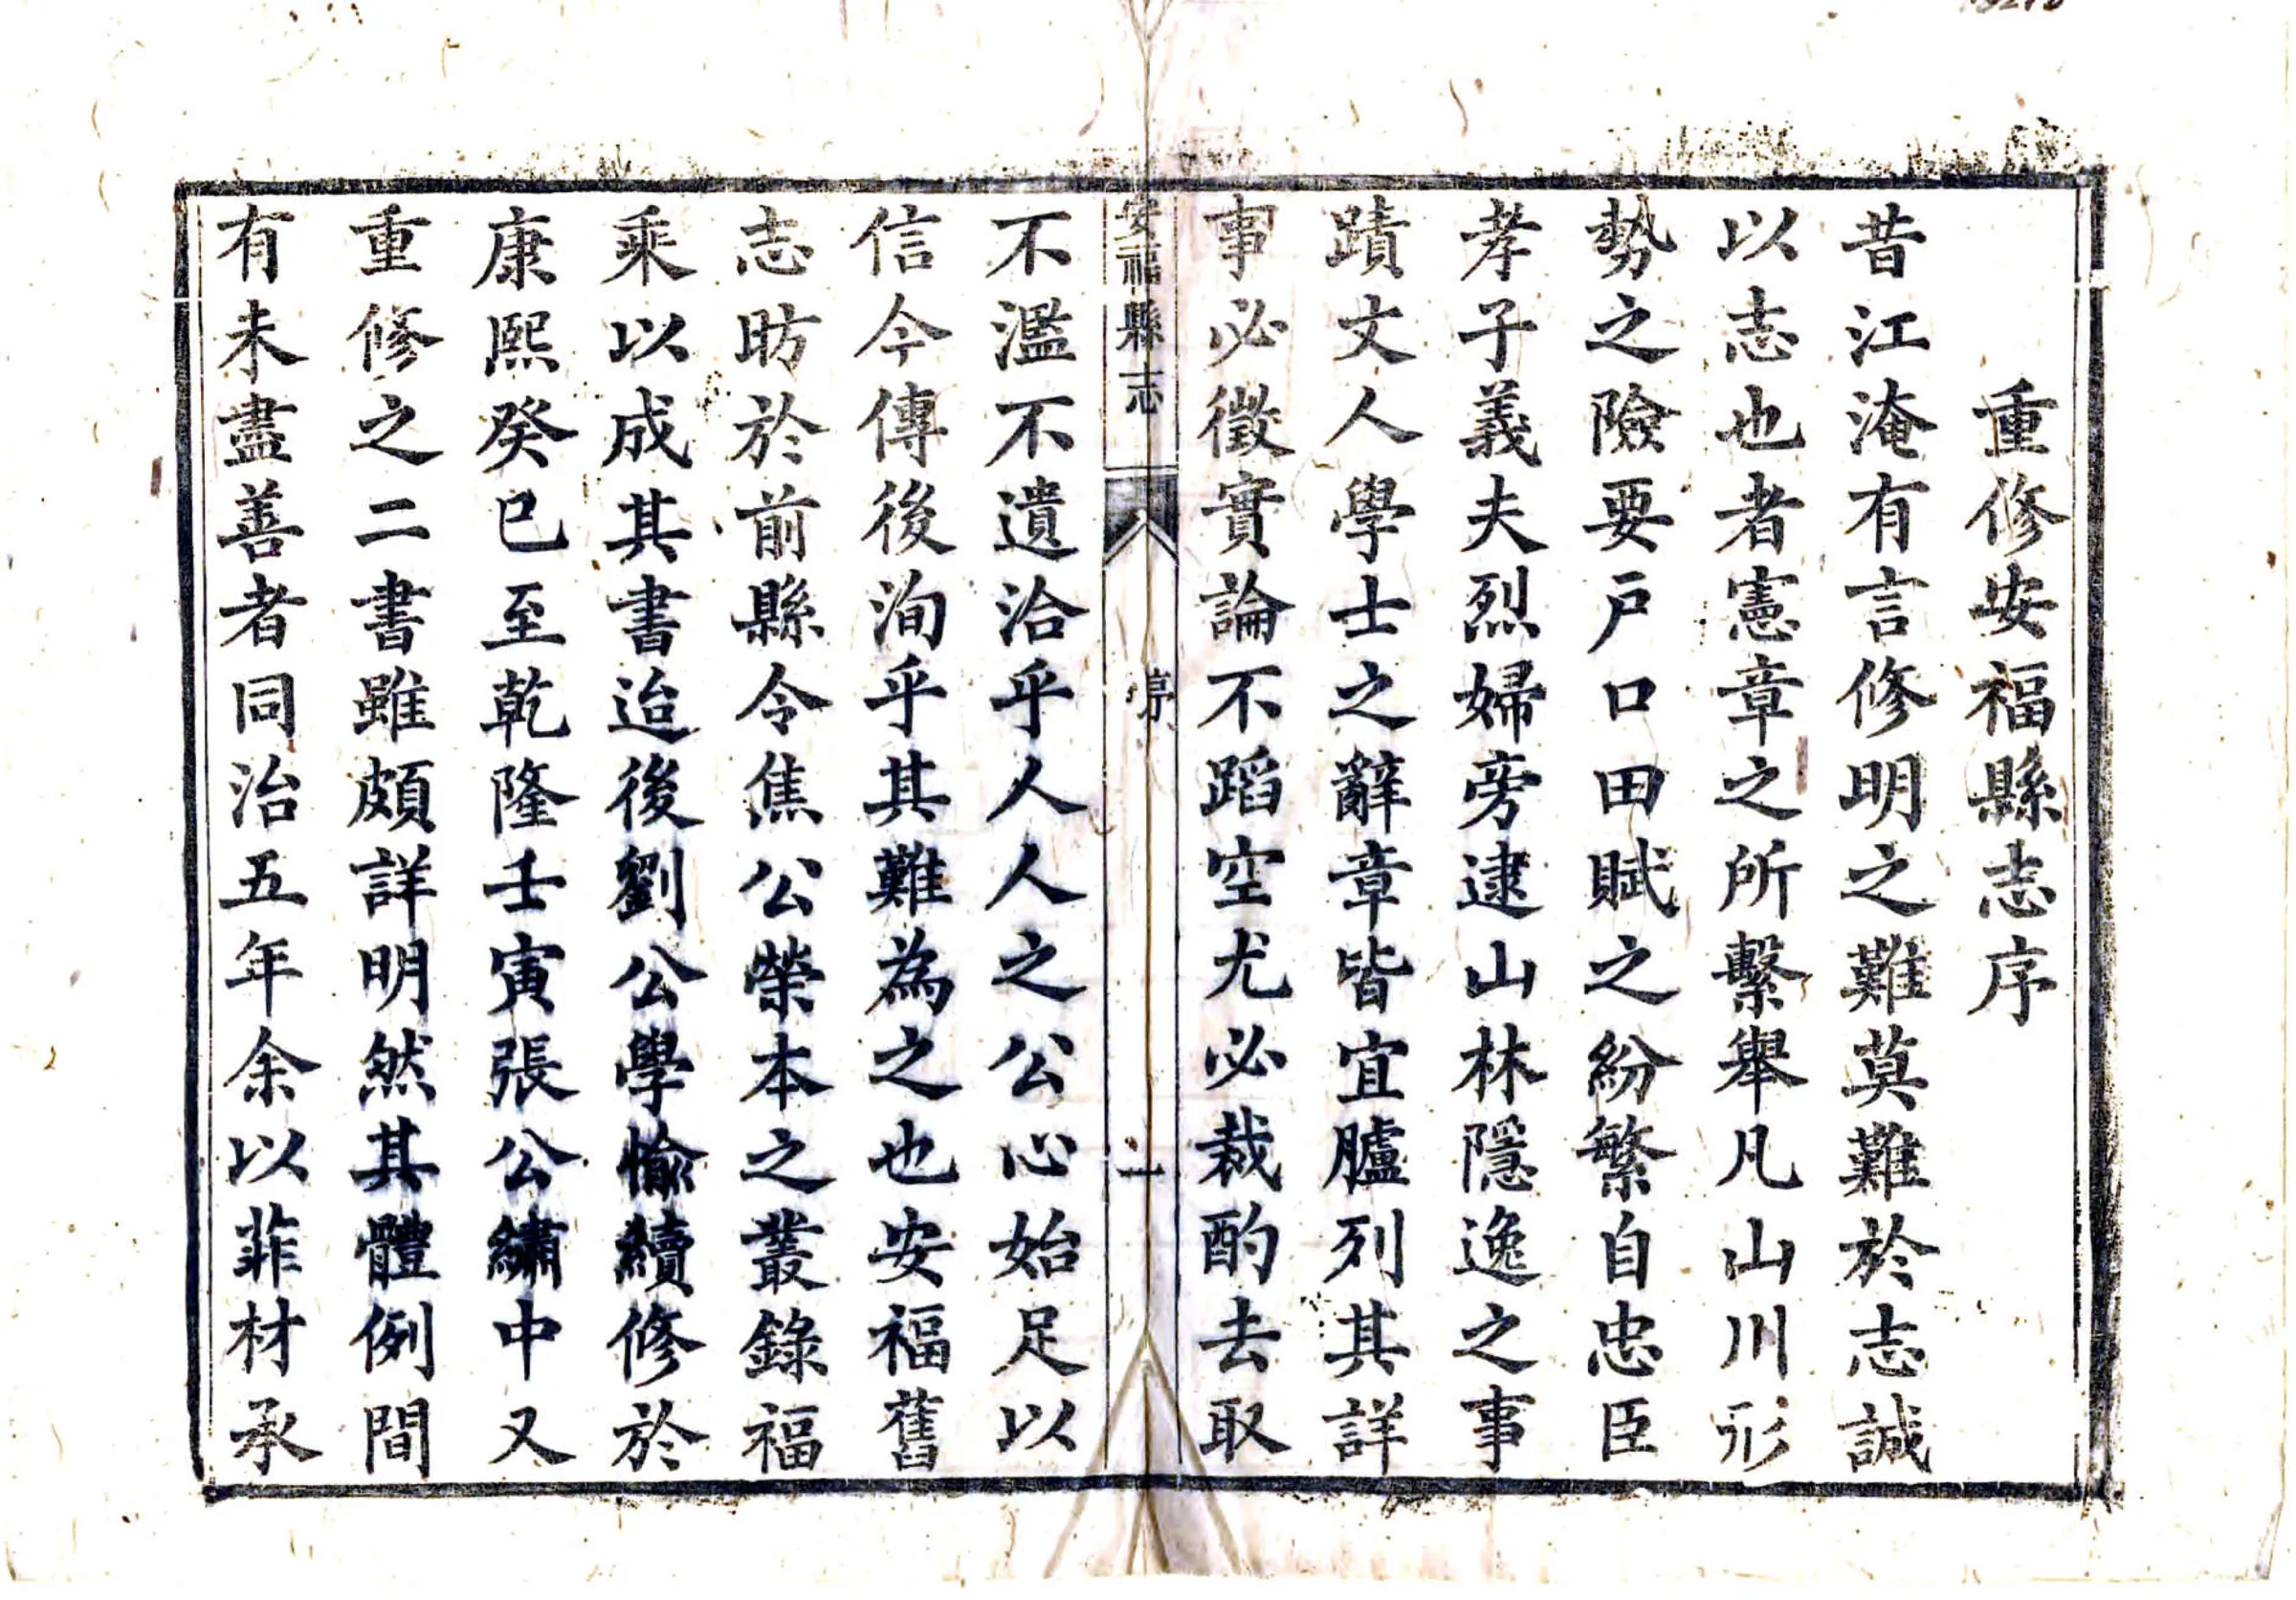 重修安福縣志序
昔江淹有言修明之難莫難於志誠
以志也者憲章之所繫舉凡山川形
勢之險要戶口田賦之紛繁自忠臣
孝子義夫烈婦旁逮山林隱逸之事
蹟文人學士之辭章皆宜臚列其詳
事必徵實論不蹈空尤必裁酌去取
安福縣志 序 一
不濫不遺洽乎人人之公心始足以
信今傳後洵乎其難為之也安福舊
志昉於前縣令焦公榮本之叢錄福
乘以成其書迨後劉公學愉續修於
康熙癸巳至乾隆壬寅張公繡中又
重修之二書雖頗詳明然其體例間
有未盡善者同治五年余以菲材承